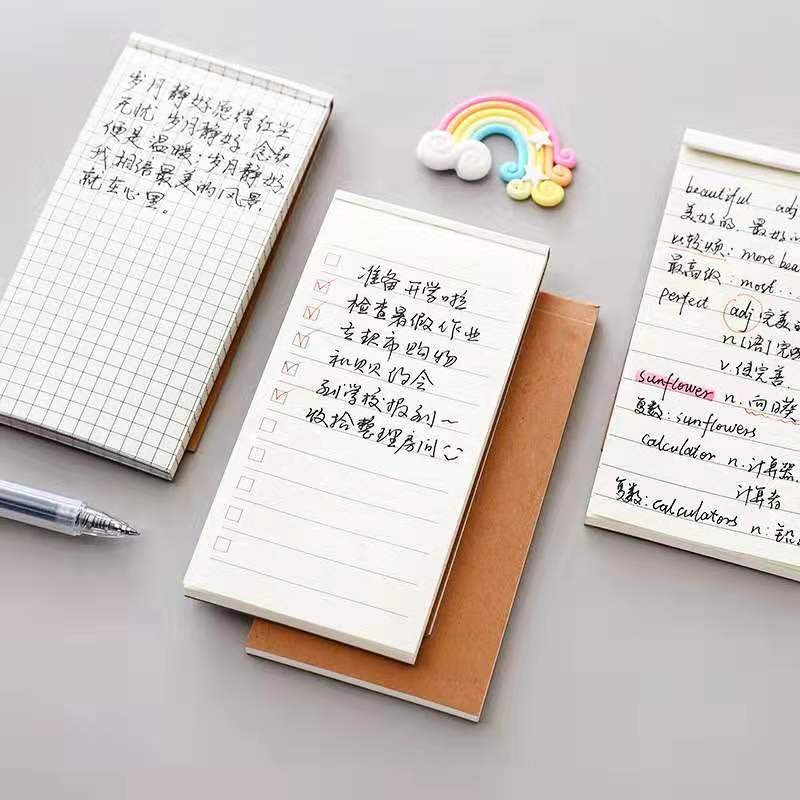 岁月静好愿得红尘
无忧 岁月静好,念起
便是温暖;岁月静好
我相信最美的风景,
就在心里。
准备开学啦
检查暑假作业
去超市购物
和贝贝约会
到学校报到~
收拾整理房间
beautiful adj
美好的,最好
比较级:more bea
最高级:most...
perfect adj 完美的
n[语]完
v.使完善
sunflower n.向日葵
复数:sunflowers
calculator n.计算器
计算者
复数:calculators n: